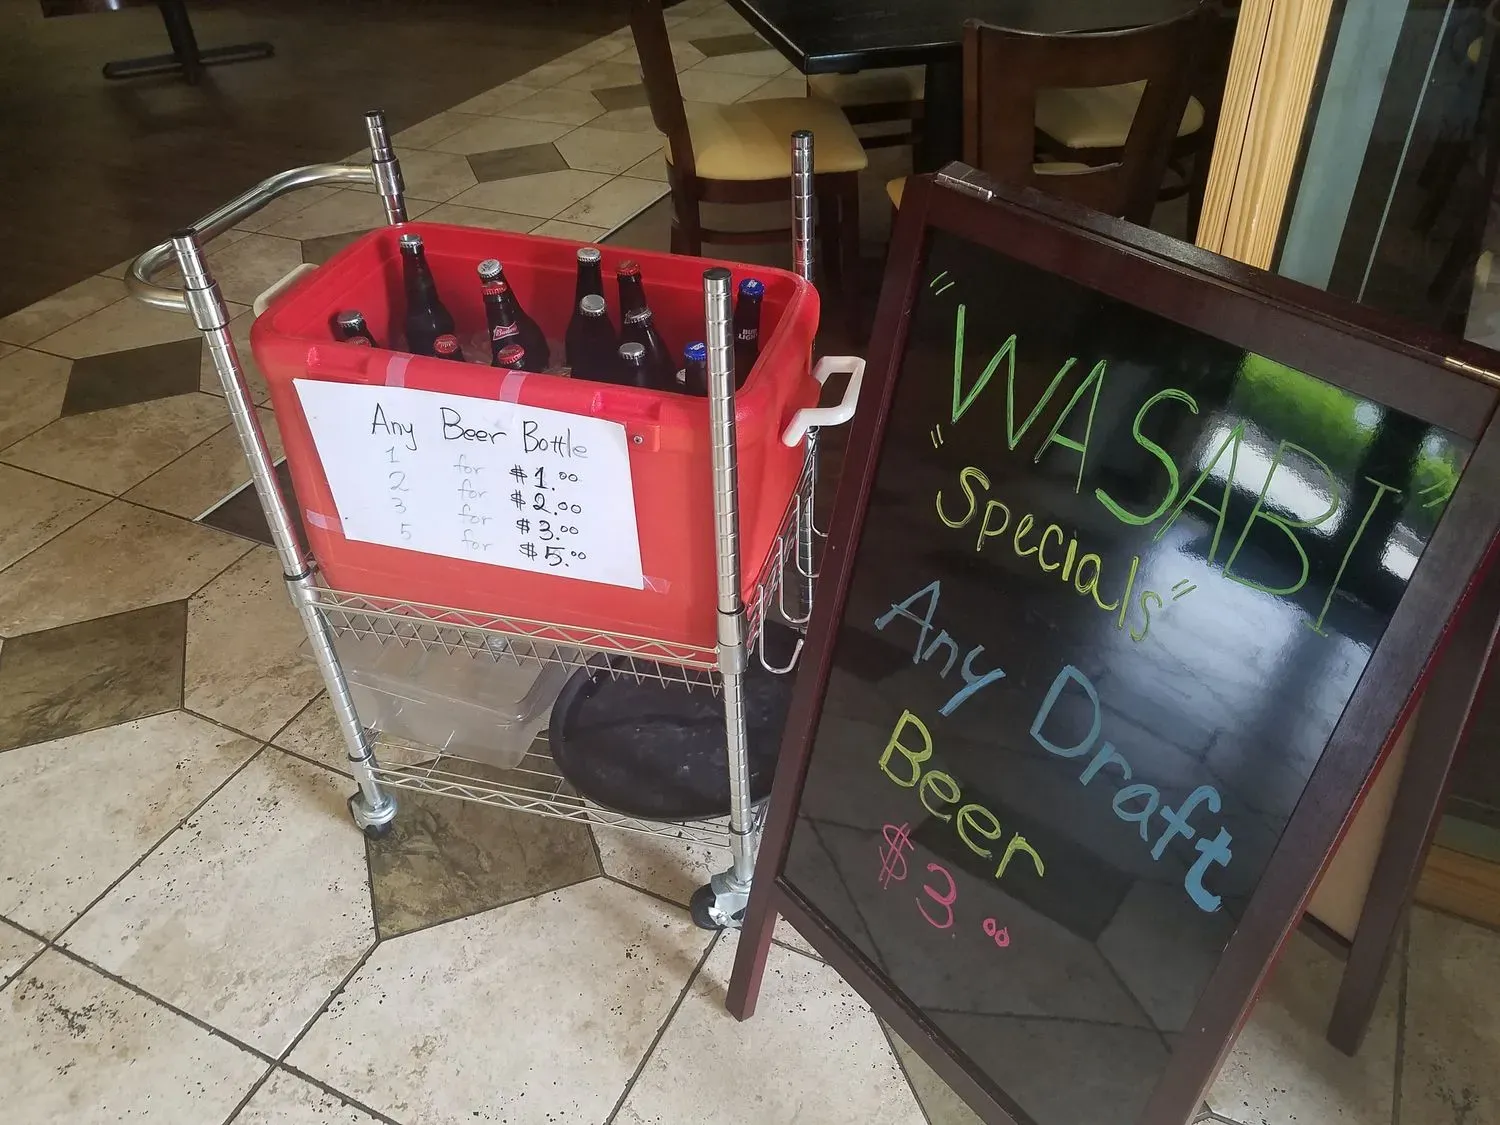 Any Beer Bottle
1 for $1.00
2 for $2.00
3 for $3.00
5 for $5.00
BUD
LIGHT
Budweiser
"WASABI"
"Specials"
Any Draft
Beer
$3.00